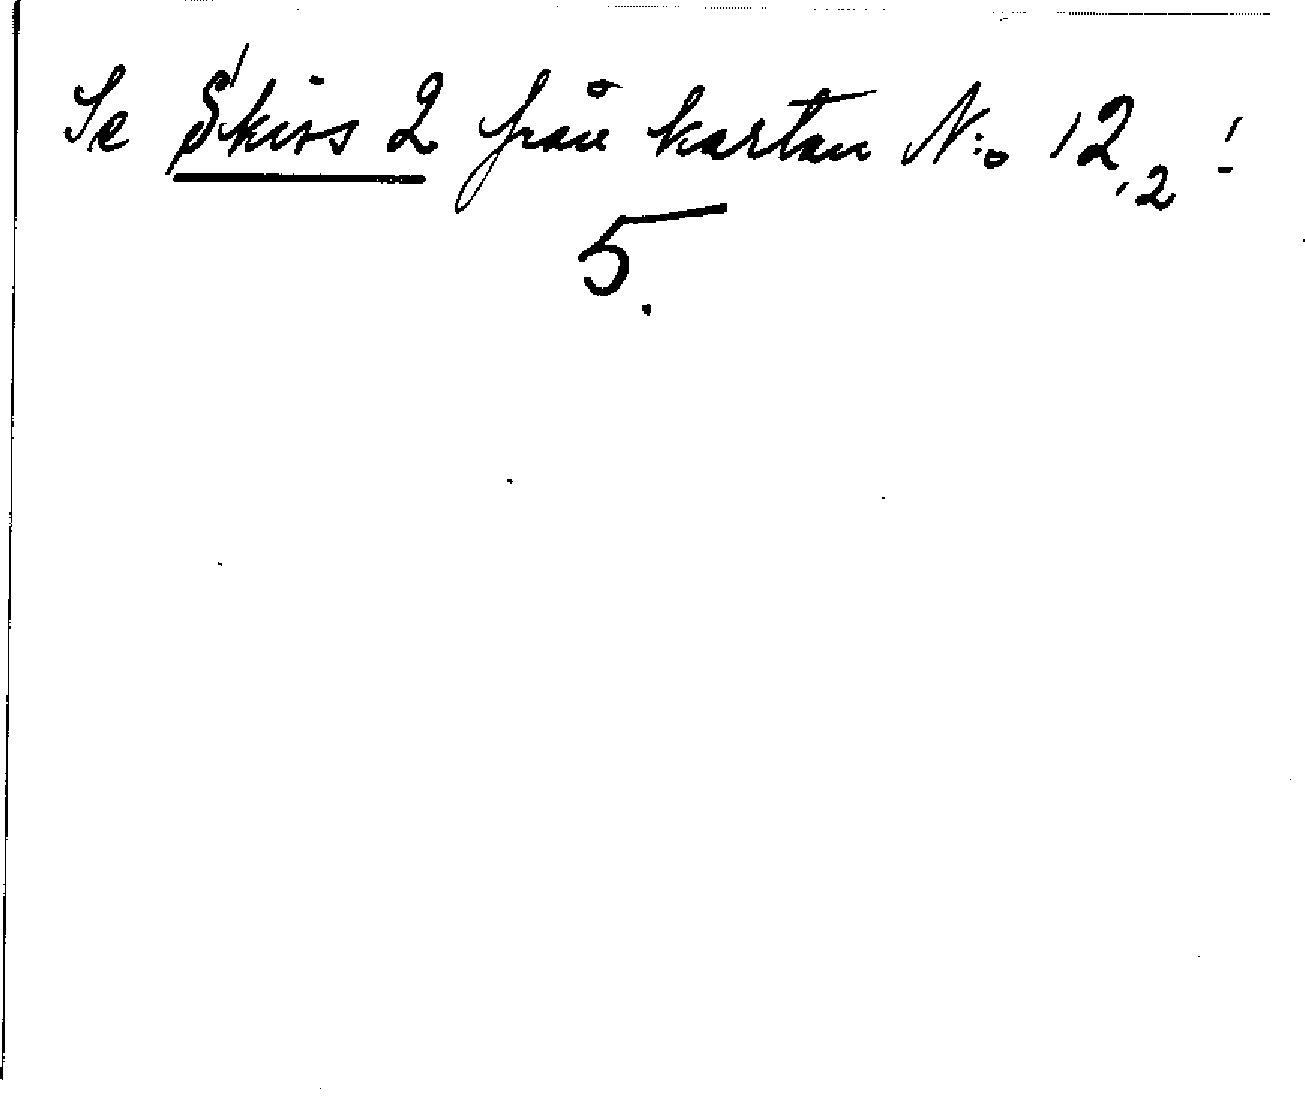 Se Skiss 2 från kartan N:o 12,2!
5.